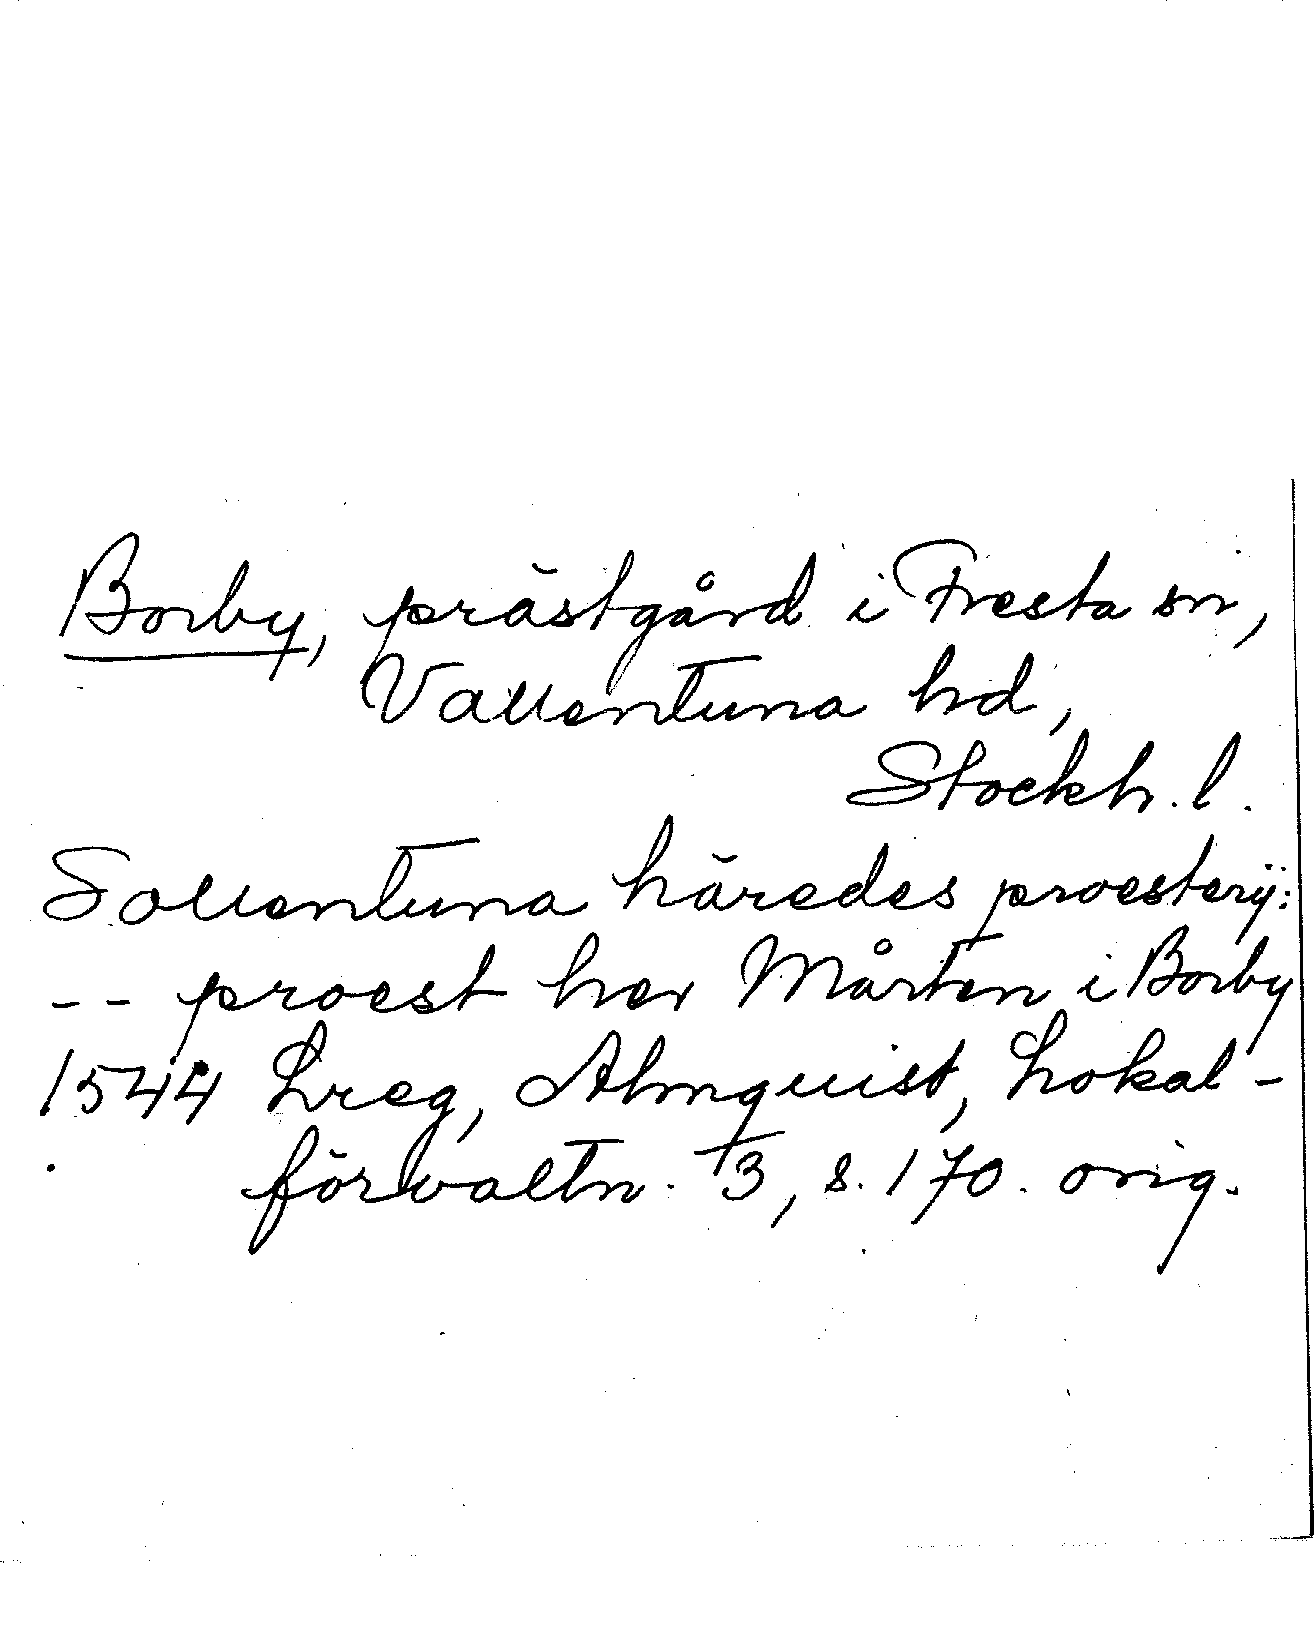 Borby, prästgård i Fresta sn,
Vallentuna hd,
Stockh. l.
Sollentuna häredes proesterÿ:
-- proest her Mårten i Borby
1544 Lreg, Almquist, Lokal-
förvaltn. T3, s. 170. orig.